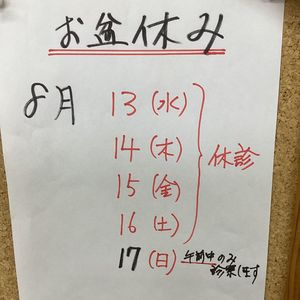 お盆休み
8月 13(水)
14(木)
15(金) 休診
16(土)
17(日) 午前中のみ
診療します